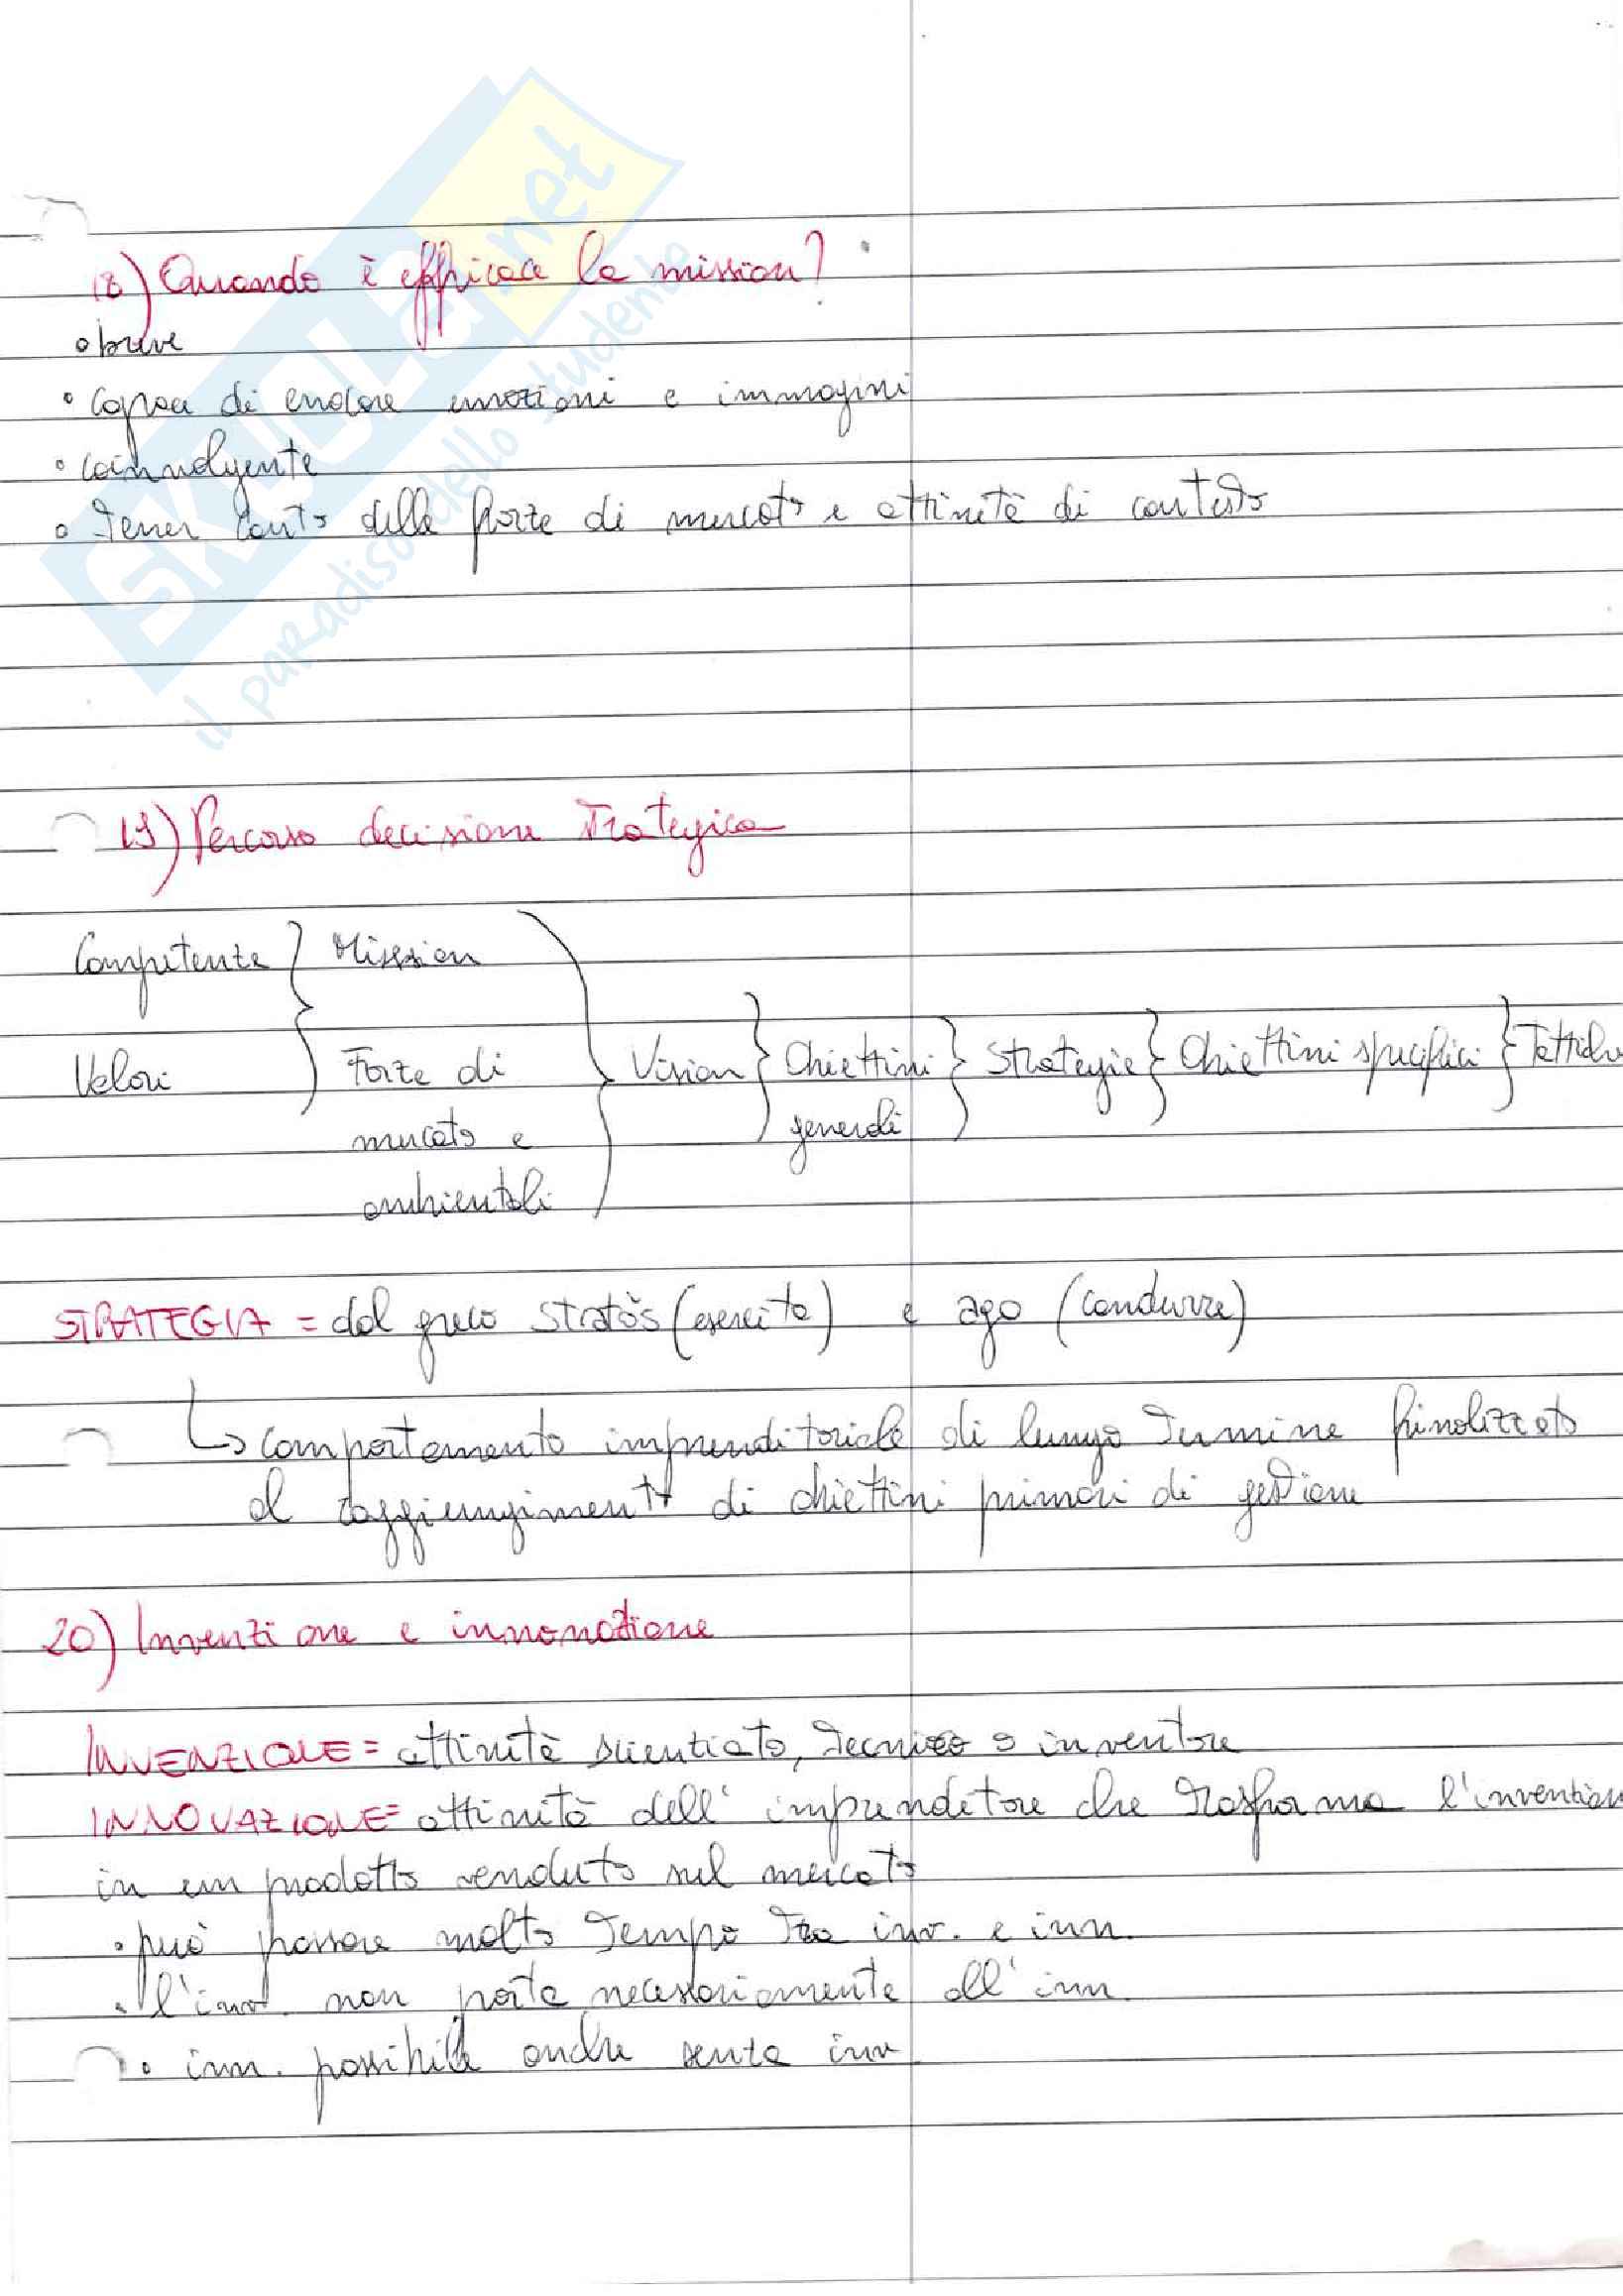 SKUOLA.net
il paradiso dello studente
18) Quando è efficace la mission?
• breve
• capace di evocare emozioni e immagini
• coinvolgente
• tener conto delle forze di mercato e attività di contesto
19) Percorso decisione strategica
Competenze } Mission
Valori } Forze di } Vision } Obiettivi } Strategie } Obiettivi specifici } Tattiche
mercato e generali
ambientali
STRATEGIA = dal greco stratòs (esercito) e ago (condurre)
↳ comportamento imprenditoriale di lungo termine finalizzato
al raggiungimento di obiettivi primari di gestione
20) Invenzione e innovazione
INVENZIONE = attività scienziato, tecnico o inventore
INNOVAZIONE = attività dell'imprenditore che trasforma l'invenzion
in un prodotto venduto sul mercato
• può passare molto tempo tra inv. e inn.
• l'inv. non porta necessariamente all'inn.
• inn. possibile anche senza inv